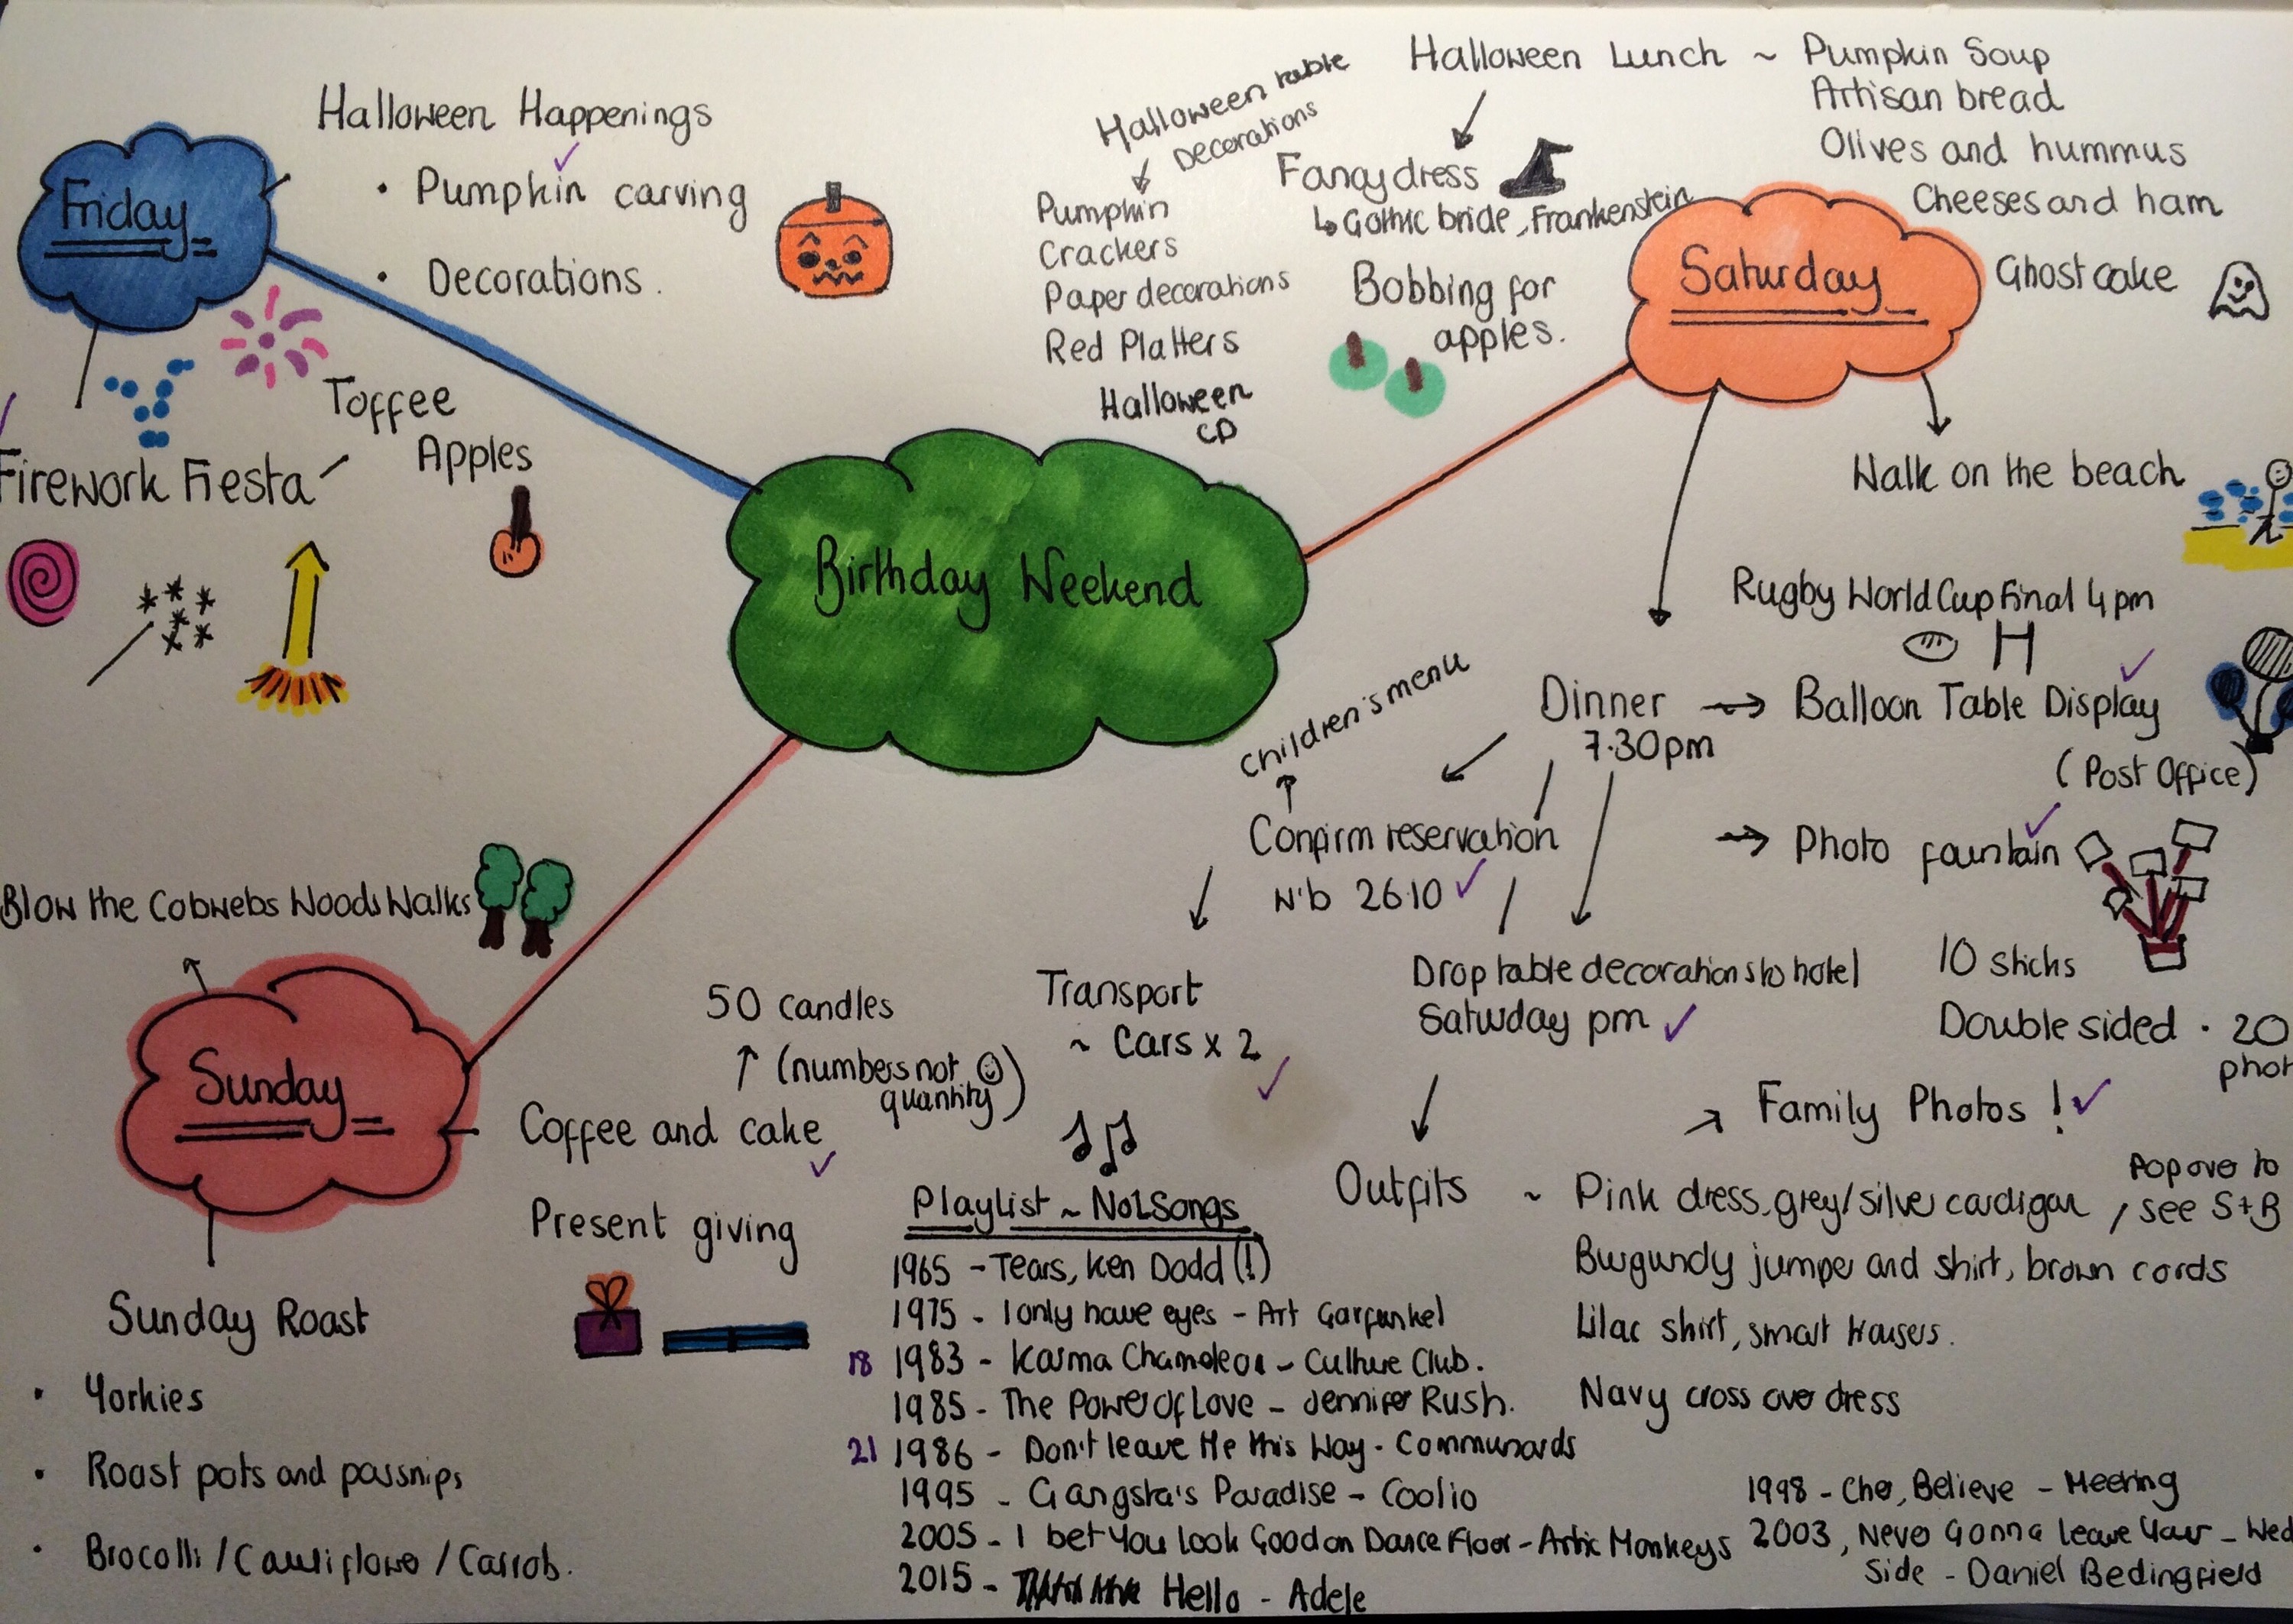 Birthday Weekend
Friday
Halloween Happenings
• Pumpkin carving
• Decorations.
Firework Fiesta
Toffee
Apples
Saturday
Halloween Lunch ~ Pumpkin Soup
Artisan bread
Olives and hummus
Cheeses and ham
Ghost cake
Halloween table
Decorations
Pumpkin
Crackers
Paper decorations
Red Platters
Halloween
CD
Fancy dress
↳ Gothic bride, Frankenstein
Bobbing for
apples.
Walk on the beach
Rugby World Cup Final 4pm
Dinner → Balloon Table Display
7.30pm
(Post Office)
→ Photo fountain
10 sticks
Double sided · 20
phot
Children's menu
Confirm reservation
N'b 26.10
Drop table decorations to hotel
Saturday pm
Transport
~ Cars x 2
Outfits ~ Pink dress, grey/silver cardigan
Burgundy jumper and shirt, brown cords
Lilac shirt, smart trousers.
Navy cross over dress
Family Photos!
/ Pop over to
see S+B
Sunday
Blow the Cobwebs Woods Walks
50 candles
(numbers not
quantity)
Coffee and cake
Present giving
Sunday Roast
• Yorkies
• Roast pots and parsnips
• Brocolli / Cauliflower / Carrots.
Playlist ~ No1 Songs
1965 - Tears, Ken Dodd (!)
1975 - I only have eyes - Art Garfunkel
18 1983 - Karma Chameleon - Culture Club.
1985 - The Power Of Love - Jennifer Rush.
21 1986 - Don't leave Me this Way - Communards
1995 - Gangsta's Paradise - Coolio
2005 - I bet You look Good on Dance Floor - Artic Monkeys
2015 - Hello - Adele
1998 - Cher, Believe - Meeting
2003, Never Gonna leave Your - Wed
Side - Daniel Bedingfield